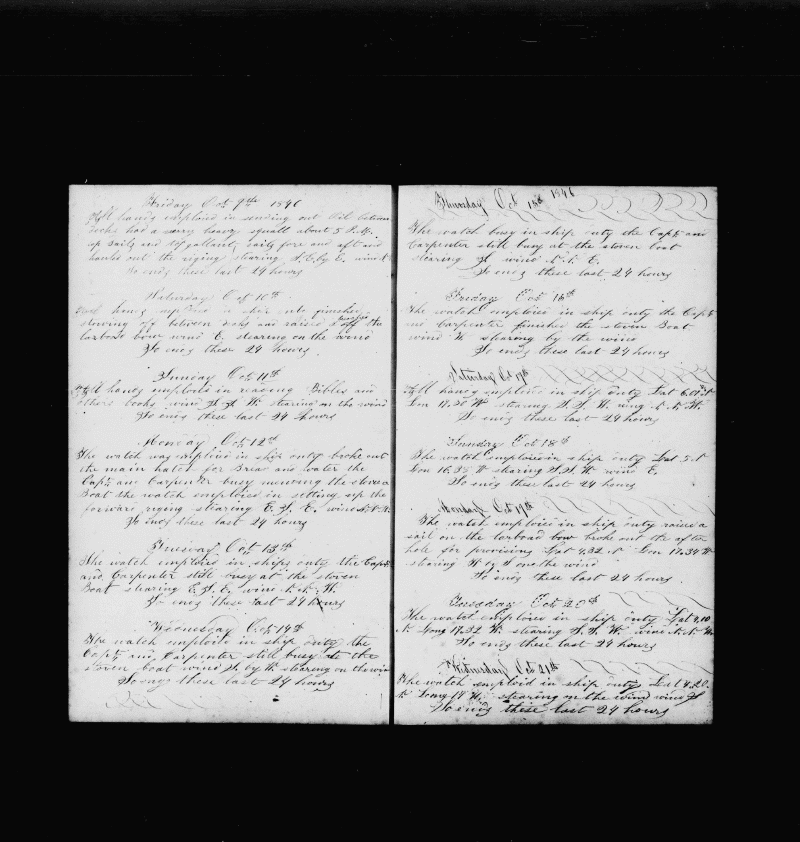 Friday Oct 9th 1846
All hands emploid in sending out Oil between
decks had a very heavy squall about 5 P.M.
up sails and
hauks out the riging stearing S.E. by E. wind
So ends these last 24 hours
Saturday Oct 10th
finished
stowing of between decks and raised off the
larboad bow wind E. stearing on the wind
So ends these 24 hours
Sunday Oct 11th
All hands emploied in reading Bibles and
others books wind S.S.W. stearing on the wind
So ends these last 24 hours
Monday Oct 12th
The watch was emploied in ship duty broke out
the main hatch for Bread and water the
Capt. and Carpenter busy mending the stoven
Boat the watch emploied in setting up the
forward riging stearing E.S.E. wind
So ends these last 24 hours
Tuesday Oct 13th
The watch emploied in ships duty the Capt.
and Carpenter still busy at the stoven
Boat stearing E.S.E. wind N.N.W.
So ends these last 24 hours
Wednesday Oct 14th
The watch emploid in ship duty the
Capt. and Carpenter still busy at the
stoven boat wind S. by W. stearing on the wind
So ends these last 24 hours
Thursday Oct 15th 1846
The watch busy in ship duty the Capt. and
Carpenter still busy at the stoven boat
stearing S wind N.N.E.
So ends these last 24 hours
Friday Oct 16th
The watch emploied in ship duty the Capt.
and Carpenter finished the stoven Boat
wind W stearing by the wind
So ends these last 24 hours
Saturday Oct 17th
All hands emploied in ship duty Lat
Lon 17.30 W stearing S.S.W. wind N.N.W.
So ends these last 24 hours
Sunday Oct 18th
The watch emploies in ship duty Lat 5. N
Lon 16.35 W stearing S.S.W. wind E.
So ends these last 24 hours
Monday Oct 19th
The watch emploied in ship duty raised a
sail on the larboad bow broke out the after
hole for provisins Lat 4.32 N Lon 17.34 W
stearing W by S on the wind
So ends these last 24 hours
Tuesday Oct 20th
The watch emploied in ship duty Lat 4.10
N. Long 17.32 W. stearing S.S.W. wind N.N.W.
So ends these last 24 hours
Wedensday Oct 21th
The watch emploid in ship duty Lat 4.20
N Long 17 W. stearing on the wind wind S
So ends these last 24 hours